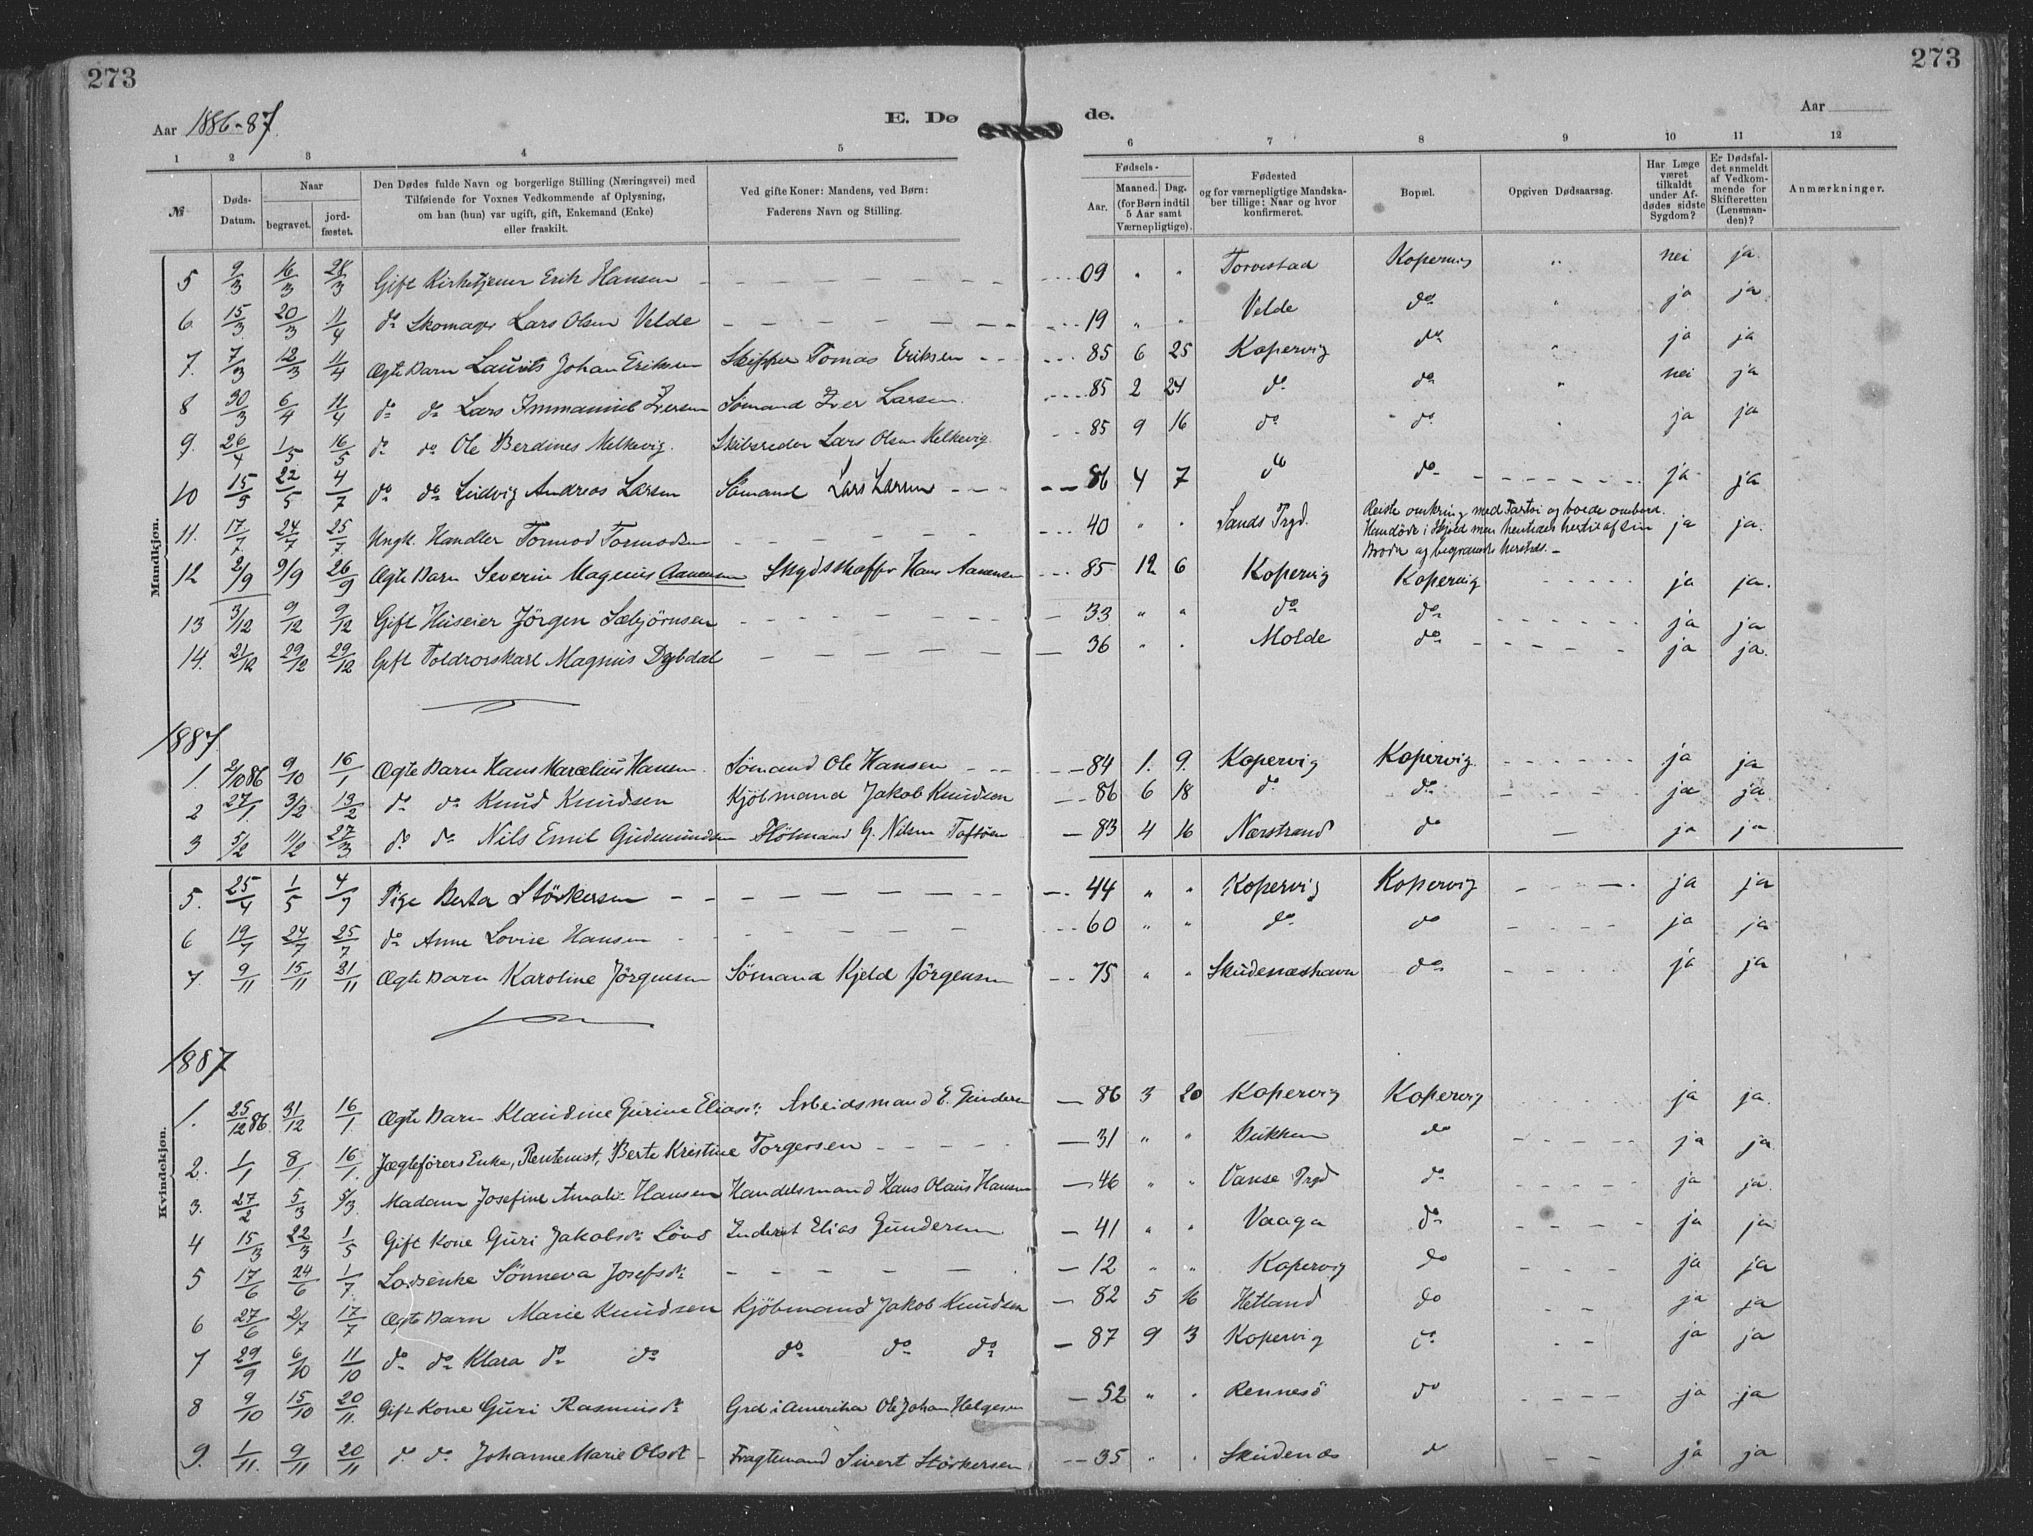 273
273
Aar 1886-87.
E. Dø de.
Aar
1 2 3 4 5 6 7 8 9 10 11 12
№
Døds-Datum.
Naar
begravet.
jord-fæstet.
Den Dødes fulde Navn og borgerlige Stilling (Næringsvei) med
Tilføiende for Voxnes Vedkommende af Oplysning,
om han (hun) var ugift, gift, Enkemand (Enke)
eller fraskilt.
Ved gifte Koner: Mandens, ved Børn:
Faderens Navn og Stilling.
Fødsels-
Aar.
Maaned. Dag.
(for Børn indtil
5 Aar samt
Værnepligtige).
Fødested
og for værnepligtige Mandska-
ber tillige: Naar og hvor
konfirmeret.
Bopæl.
Opgiven Dødsaarsag.
Har Læge
været
tilkaldt
under Af-
dødes sidste
Sygdom?
Er Dødsfal-
det anmeldt
af Vedkom-
mende for
Skifteretten
(Lensman-
den)?
Anmærkninger.
Mandkjøn.
5 9/3 16/3 28/3 Gift Kirketjener Erik Hansen — 09 " " Torvestad Kopervig " nei ja
6. 15/3 20/3 11/4 do Skomager Lars Olsen Velde — 19 " " Velde do " ja ja
7. 7/3 12/3 11/4 Ægte Barn Laurits Johan Eriksen Skipper Tomas Eriksen — 85 6 25 Kopervig do " ja ja
8 30/3 6/4 11/4 do do Lars Immanuel Iversen Sømand Iver Larsen. 85 2 24 do do " nei ja
9. 26/4 1/5 16/5 do do Ole Berdines Melkevig. Skibsreder Lars Olsen Melkevig 85 9 16 do do " ja ja
10 15/5 22/5 4/7 do do Ludvig Andreas Larsen Sømand Lars Larsen — 86 4 7 do do — ja ja
11. 17/7 24/7 25/7 Ungk. Handler Tormod Tormodsen — 40 " " Sands Prgd. Reiste omkring med Fartøi og boede ombord.
Han døde i Skjold men hentedes hertil af sin
Broder og begravedes herstedes. — ja ja.
12 2/9 9/9 26/9 Ægte Barn Severin Magnus Aanensen Skydsskaffer Hans Aanensen — 85 12 6 Kopervig Kopervig — ja ja.
13 3/12 9/12 9/12 Gift Huseier Jörgen Sæbjörnsen — 33 " " do do — ja ja
14. 21/12 29/12 29/12 Gift Toldrorskarl Magnus Dybdal — 36 " " Molde do — ja ja.
1887
1. 2/10 86 9/10 16/1 Ægte Barn Hans Marcelius Hansen. Sömand Ole Hansen — 84 1. 9. Kopervig Kopervig. — ja ja
2 27/1 3/2 13/2 do do Knud Knudsen Kjöbmand Jakob Knudsen — 86 6 18 do do — ja ja
3 5/2 11/2 27/3 do do Nils Emil Gudmundsen G. Nilsen — 83 4 16 Nærstrand do — ja ja
5. 25/4 1/5 4/7 Pige Berta Störkersen — 44 " " Kopervig Kopervig — ja ja
6 19/7 24/7 25/7 do Anne Lovise Hansen — 60 " " do do — ja ja
7. 9/11 15/11 21/11 Ægte Barn Karoline Jörgensen Sömand Kjeld Jörgensen — 75 " " Skudeneshavn do — ja ja
1887
Kvindekjøn.
1. 25/12 86. 31/12 16/1 Ægte Barn Klaudine Gurine Eliasd. Arbeidsmand E. Gundersen — 86 3 20 Kopervig Kopervig — ja ja.
2. 1/1 8/1 16/1. Jægteförers Enke, Rentenist, Berte Kristine Torgersen — 31 " " Bukken do — ja ja
3. 27/2 5/3 5/3. Madam Josefine Amalie Hansen Handelsmand Hans Olaus Hansen — 46 " " Vanse Prgd do — ja ja.
4 15/3 22/3 1/5 Gift Kone Guri Jakobsd. Inderst Elias Gundersen — 41 " " Vaaga do — ja ja
5 17/6 24/6 1/7 Lodsenke Sönneva Josefsd. — 12 " " Kopervig do — ja ja
6 27/6 2/7 17/7 Ægte Barn Marie Knudsen Kjöbmand Jakob Knudsen — 82 5 16 Hetland do — ja ja
7 29/9 6/10 11/10 do do Klara do do do do do — 87 9 3 Kopervig do — ja ja
8 9/10 15/10 20/11. Gift Kone Guri Rasmusd. Grd i Amerika Ole Johan Helgesen — 52 " " Rennesö do — ja ja
9. 1/11. 9/11 20/11 do do Johanne Marie Olsdt — Fragtemand Sivert Störkersen — 35 " " Skudenes do — ja ja